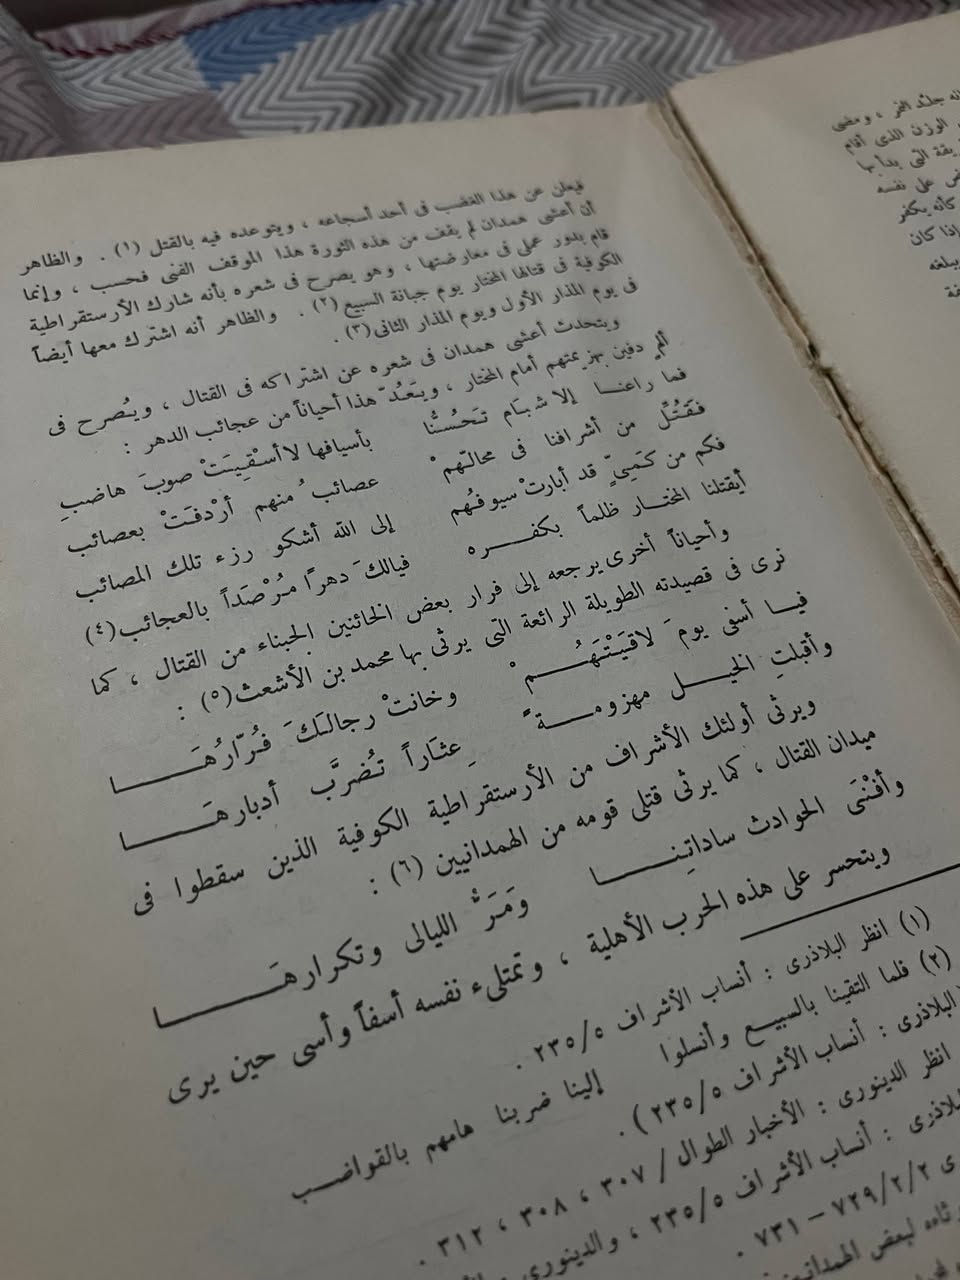 فيعلن عن هذا الغضب فى أحد أسجاعه ، ويتوعده فيه بالقتل (١) . والظاهر
أن أعشى همدان لم يقف من هذه الثورة هذا الموقف الفنى فحسب ، وإنما
قام بدور عملى فى معارضتها ، وهو يصرح فى شعره بأنه شارك الأرستقراطية
الكوفية فى قتالها المختار يوم جبانة السبيع (٢) . والظاهر أنه اشترك معها أيضاً
فى يوم المذار الأول ويوم المذار الثانى (٣) .
ويتحدث أعشى همدان فى شعره عن اشتراكه فى القتال ، ويُصرح فى
ألم دفين بهزيمتهم أمام المختار ، ويَعُدّ هذا أحياناً من عجائب الدهر :
فما راعنا إلا شبام تَحُسُّنا بأسيافها لا أسْقِيَتْ صوبَ هاضبِ
فَقَتُل من أشرافنا فى محالّهمْ عصائبُ منهم أرْدفَتْ بعصائب
فكم من كَمِىٍّ قد أبارتْ سيوفُهم إلى الله أشكو رزء تلك المصائب
أيقتلنا المختار ظلماً بكفره فيالكَ دهراً مُرْصَداً بالعجائب (٤)
وأحياناً أخرى يرجعه إلى فرار بعض الخائنين الجبناء من القتال ، كما
نرى فى قصيدته الطويلة الرائعة التى يرثى بها محمد بن الأشعث (٥) :
فيا أسفى يومَ لاقيَتْهَمُ وخانتْ رجالكَ فُرّارُهَا
وأقبلتِ الخيل مهزومةً عِثَاراً تُضرَّب أدبارهَا
ويرثى أولئك الأشراف من الأرستقراطية الكوفية الذين سقطوا فى
ميدان القتال ، كما يرثى قتلى قومه من الهمدانيين (٦) :
وأفْنَى الحوادث ساداتِنا وَمَرُّ الليالى وتكرارهَا
ويتحسر على هذه الحرب الأهلية ، وتمتلىء نفسه أسفاً وأسى حين يرى
(١) انظر البلاذرى : أنساب الأشراف ٥/٢٣٥ .
(٢) فلما التقينا بالسبيع وأنسلوا إلينا ضربنا هامهم بالقواضب
البلاذرى : أنساب الأشراف ٥/٢٣٥ ) .
انظر الدينورى : الأخبار الطوال / ٣٠٧ ، ٣٠٨ ، ٣١٢ .
: أنساب الأشراف ٥/٢٣٥ ، والدينورى
٧٢٩/٢/٢ – ٧٣١ .
لبعض
جلد النمر ، ومضى
الوزن الذى أقام
التى بدأ بها
على نفسه
كأنه يكفر
كان
يبلغه